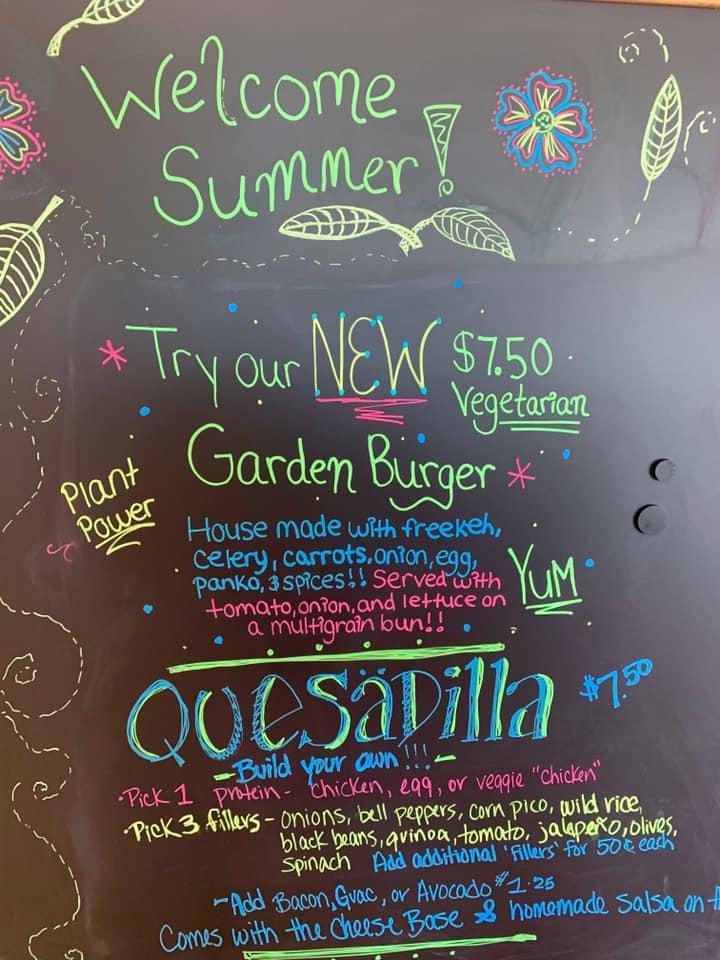 Welcome
Summer!
* Try our NEW $7.50
Vegetarian
Garden Burger *
Plant
Power
House made with freekeh,
celery, carrots, onion, egg,
panko, & spices!! Served with
tomato, onion, and lettuce on
a multigrain bun!!
YUM
QUESADILLA $7.50
- Build your own!!! -
• Pick 1 protein - chicken, egg, or veggie "chicken"
• Pick 3 fillers - onions, bell peppers, corn pico, wild rice,
black beans, quinoa, tomato, jalapeño, olives,
spinach Add additional 'fillers' for 50¢ each
- Add Bacon, Guac, or Avocado $1.25
Comes with the Cheese Base & homemade salsa on